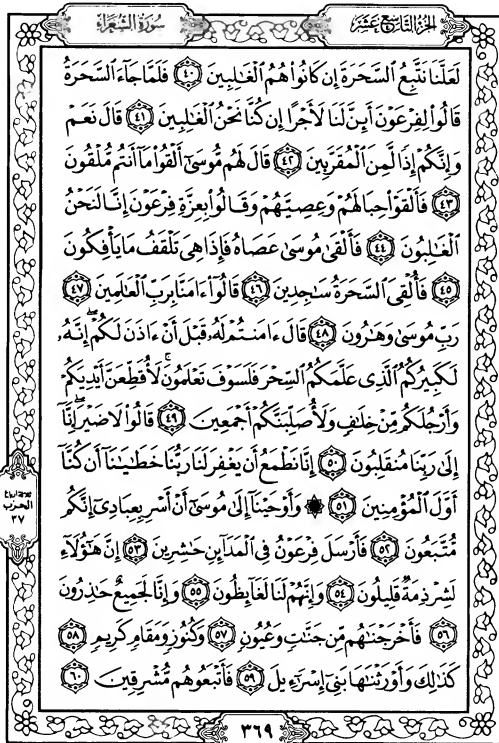 سورة الشعراء
الجزء التاسع عشر
لَعَلَّنَا نَتَّبِعُ السَّحَرَةَ إِن كَانُوا۟ هُمُ الْغَـٰلِبِينَ ٤٠ فَلَمَّا جَآءَ السَّحَرَةُ
قَالُوا۟ لِفِرْعَوْنَ أَئِنَّ لَنَا لَأَجْرًا إِن كُنَّا نَحْنُ الْغَـٰلِبِينَ ٤١ قَالَ نَعَمْ
وَإِنَّكُمْ إِذًا لَّمِنَ الْمُقَرَّبِينَ ٤٢ قَالَ لَهُم مُّوسَىٰٓ أَلْقُوا۟ مَآ أَنتُم مُّلْقُونَ
٤٣ فَأَلْقَوْا۟ حِبَالَهُمْ وَعِصِيَّهُمْ وَقَالُوا۟ بِعِزَّةِ فِرْعَوْنَ إِنَّا لَنَحْنُ
الْغَـٰلِبُونَ ٤٤ فَأَلْقَىٰ مُوسَىٰ عَصَاهُ فَإِذَا هِىَ تَلْقَفُ مَا يَأْفِكُونَ
٤٥ فَأُلْقِىَ السَّحَرَةُ سَـٰجِدِينَ ٤٦ قَالُوٓا۟ ءَامَنَّا بِرَبِّ الْعَـٰلَمِينَ ٤٧
رَبِّ مُوسَىٰ وَهَـٰرُونَ ٤٨ قَالَ ءَامَنتُمْ لَهُۥ قَبْلَ أَنْ ءَاذَنَ لَكُمْ ۖ إِنَّهُۥ
لَكَبِيرُكُمُ الَّذِى عَلَّمَكُمُ السِّحْرَ فَلَسَوْفَ تَعْلَمُونَ ۚ لَأُقَطِّعَنَّ أَيْدِيَكُمْ
وَأَرْجُلَكُم مِّنْ خِلَـٰفٍ وَلَأُصَلِّبَنَّكُمْ أَجْمَعِينَ ٤٩ قَالُوا۟ لَا ضَيْرَ ۖ إِنَّآ
إِلَىٰ رَبِّنَا مُنقَلِبُونَ ٥٠ إِنَّا نَطْمَعُ أَن يَغْفِرَ لَنَا رَبُّنَا خَطَـٰيَـٰنَآ أَن كُنَّآ
أَوَّلَ الْمُؤْمِنِينَ ٥١ ۞ وَأَوْحَيْنَآ إِلَىٰ مُوسَىٰٓ أَنْ أَسْرِ بِعِبَادِىٓ إِنَّكُم
مُّتَّبَعُونَ ٥٢ فَأَرْسَلَ فِرْعَوْنُ فِى الْمَدَآئِنِ حَـٰشِرِينَ ٥٣ إِنَّ هَـٰٓؤُلَآءِ
لَشِرْذِمَةٌ قَلِيلُونَ ٥٤ وَإِنَّهُمْ لَنَا لَغَآئِظُونَ ٥٥ وَإِنَّا لَجَمِيعٌ حَـٰذِرُونَ
٥٦ فَأَخْرَجْنَـٰهُم مِّن جَنَّـٰتٍ وَعُيُونٍ ٥٧ وَكُنُوزٍ وَمَقَامٍ كَرِيمٍ ٥٨
كَذَٰلِكَ وَأَوْرَثْنَـٰهَا بَنِىٓ إِسْرَٰٓءِيلَ ٥٩ فَأَتْبَعُوهُم مُّشْرِقِينَ ٦٠
ثلاثة أرباع
الحزب
٣٧
٣٦٩